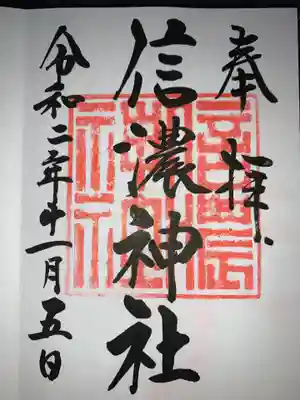 奉拝
信濃神社
令和二年十一月五日